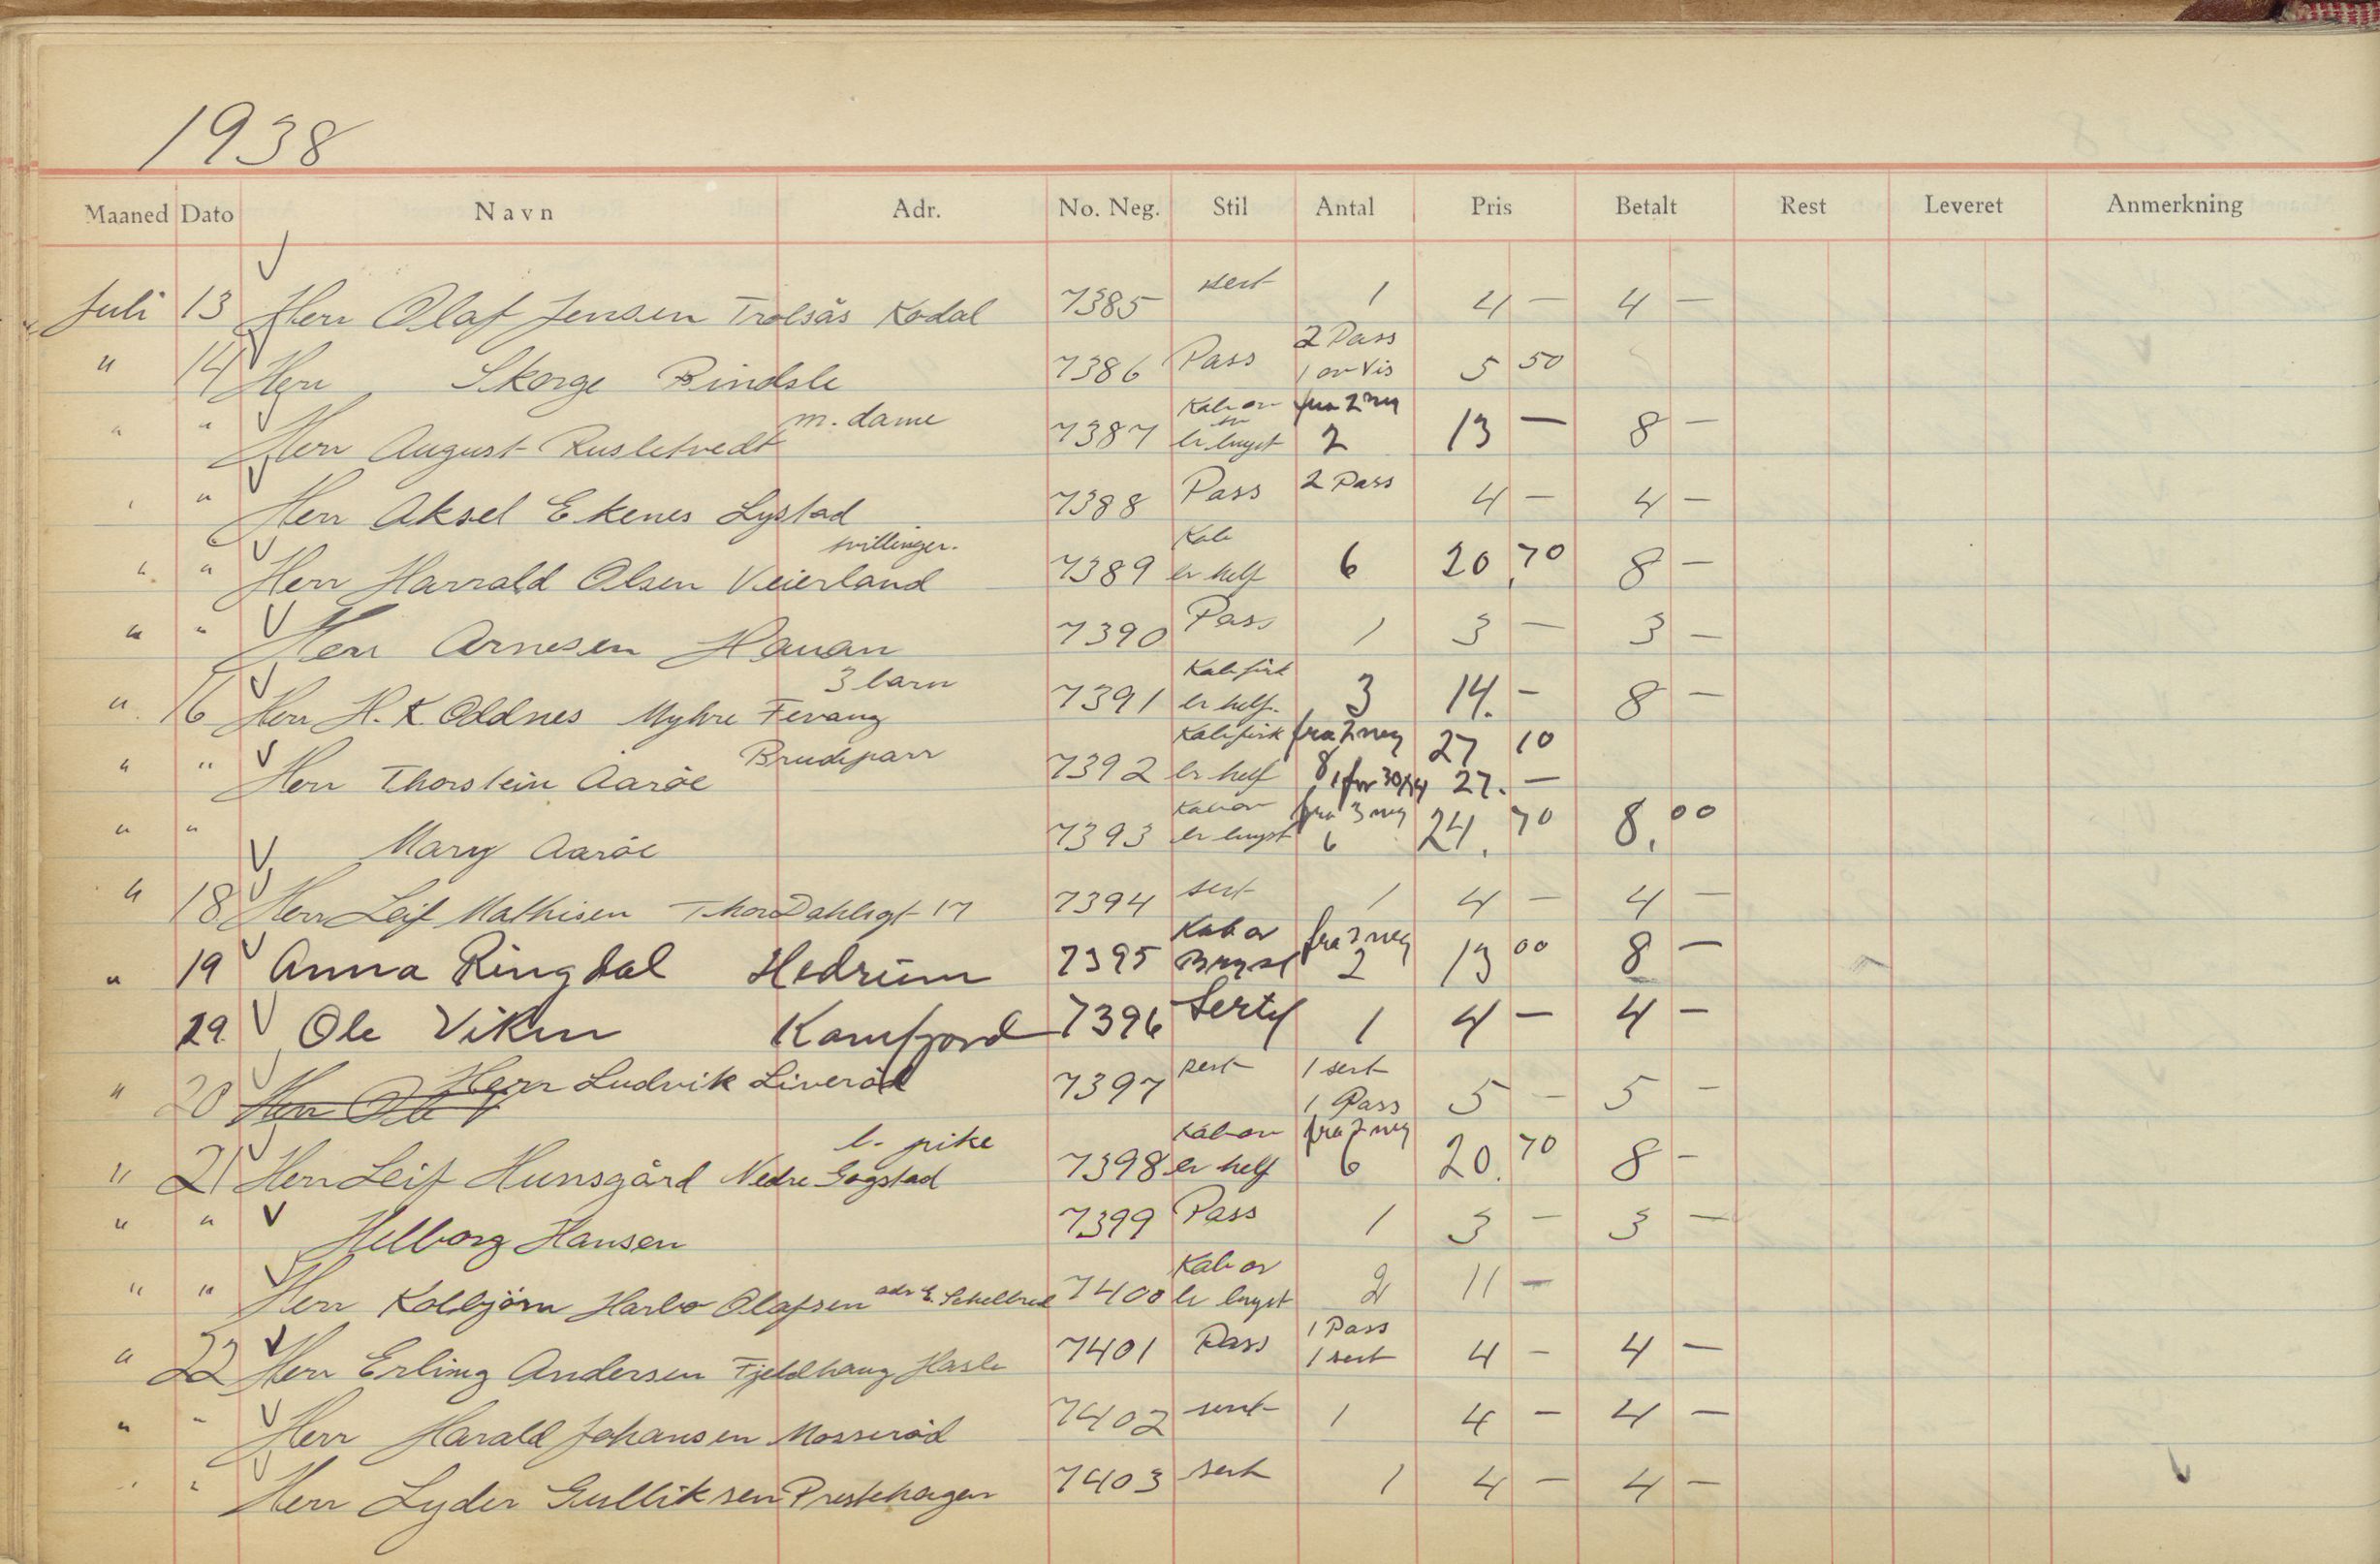 1938
Maaned Dato Navn Adr. No. Neg. Stil Antal Pris Betalt Rest Leveret Anmerkning
Juli 13 Herr Olaf Jensen Trolsås Kodal 7385 sert 1 4 — 4 —
" 14 Herr Skorge Rindsle 7386 Pass 2 Pass 1 av Vis 5 50
" " Herr August Rusletvedt m. dame 7387 Kab br. bryst fra 2 neg 2 13 — 8 —
" " Herr Aksel Ekenes Lystad 7388 Pass 2 Pass 4 — 4 —
" " Herr Harrald Olsen Veierland tvillinger. 7389 Kab br helf 6 20,70 8 —
" " Herr Arnesen Hauan 7390 Pass 1 3 — 3 —
" 16 Herr H. K. Oddnes Myhre Fevang 3 barn 7391 Kab br helf. 3 14. — 8 —
" " Herr Thorstein Aaröe Brudeparr 7392 br helf fra 2 neg 8 27 10
1 for 30/24 27. —
" " Mary Aaröe 7393 br bryst fra 3 neg 6 24.70 8.00
" 18 Herr Leif Mathisen Thor Dahlsgt 17 7394 sert 1 4 — 4 —
" 19 Anna Ringdal Hedrum 7395 Kab Bryst fra 2 neg 2 13 00 8 —
19. Ole Viken Kamfjord 7396 Serty 1 4 — 4 —
" 20 Herr Ole Herr Ludvik Liveröd 7397 sert 1 sert 1 Pass 5 — 5 —
" 21 Herr Leif Hunsgård Nedre Gogstad l. pike 7398 br helf fra 2 neg 6 20.70 8 —
" " Helborg Hansen 7399 Pass 1 3 — 3 —
" " Herr Kolbjörn Harbo Olafsen adr E. 7400 Kab br bryst 2 11 —
" 22 Herr Erling Andersen Fjeldhaug Hasle 7401 Pass 1 Pass 1 sert 4 — 4 —
" " Herr Harald Johansen Mosseröd 7402 sert 1 4 — 4 —
" " Herr Lyder Gulliksen Prestehagen 7403 sert 1 4 — 4 —